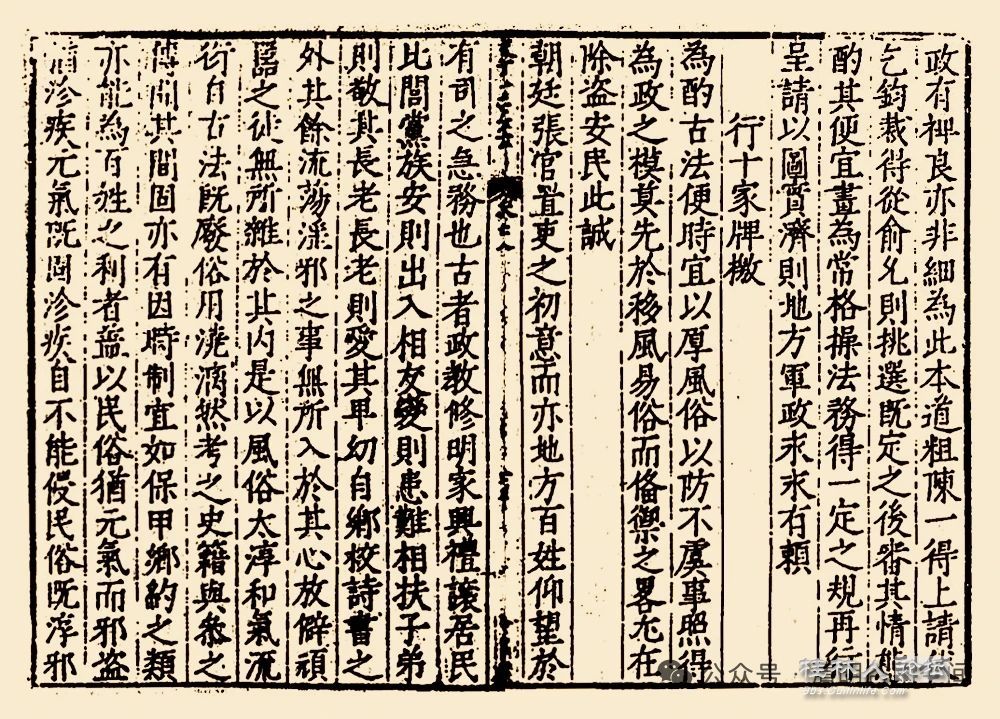 政有裨良亦非細為此本道粗陳一得上請伏
乞鈞裁得從俞允則挑選既定之後審其情態
酌其便宜畫為常格操法務得一定之規再行
呈請以圖實濟則地方軍政永永有賴
行十家牌檄
為酌古法便時宜以厚風俗以防不虞事照得
為政之模莫先於移風易俗而備禦之畧尤在
除盜安民此誠
朝廷張官置吏之初意而亦地方百姓仰望於
有司之急務也古者政教修明家興禮讓居民
比閭黨族安則出入相友變則患難相扶子弟
則敬其長老長老則愛其卑幼自鄉校詩書之
外其餘流蕩淫邪之事無所入於其心放僻頑
嚚之徒無所雜於其內是以風俗太淳和氣流
衍自古法既廢俗用澆漓然考之史籍與叅之
傳聞其間固亦有因時制宜如保甲鄉約之類
亦能為百姓之利者盖以民俗猶元氣而邪盜
猶沴疾元氣既固沴疾自不能侵民俗既浮邪
公众号
桂林人论坛
bbs.Guilinlife.Com